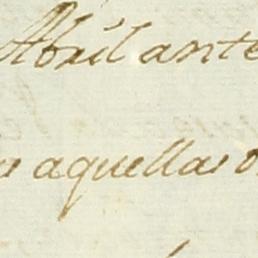 Abril ante
aquellas